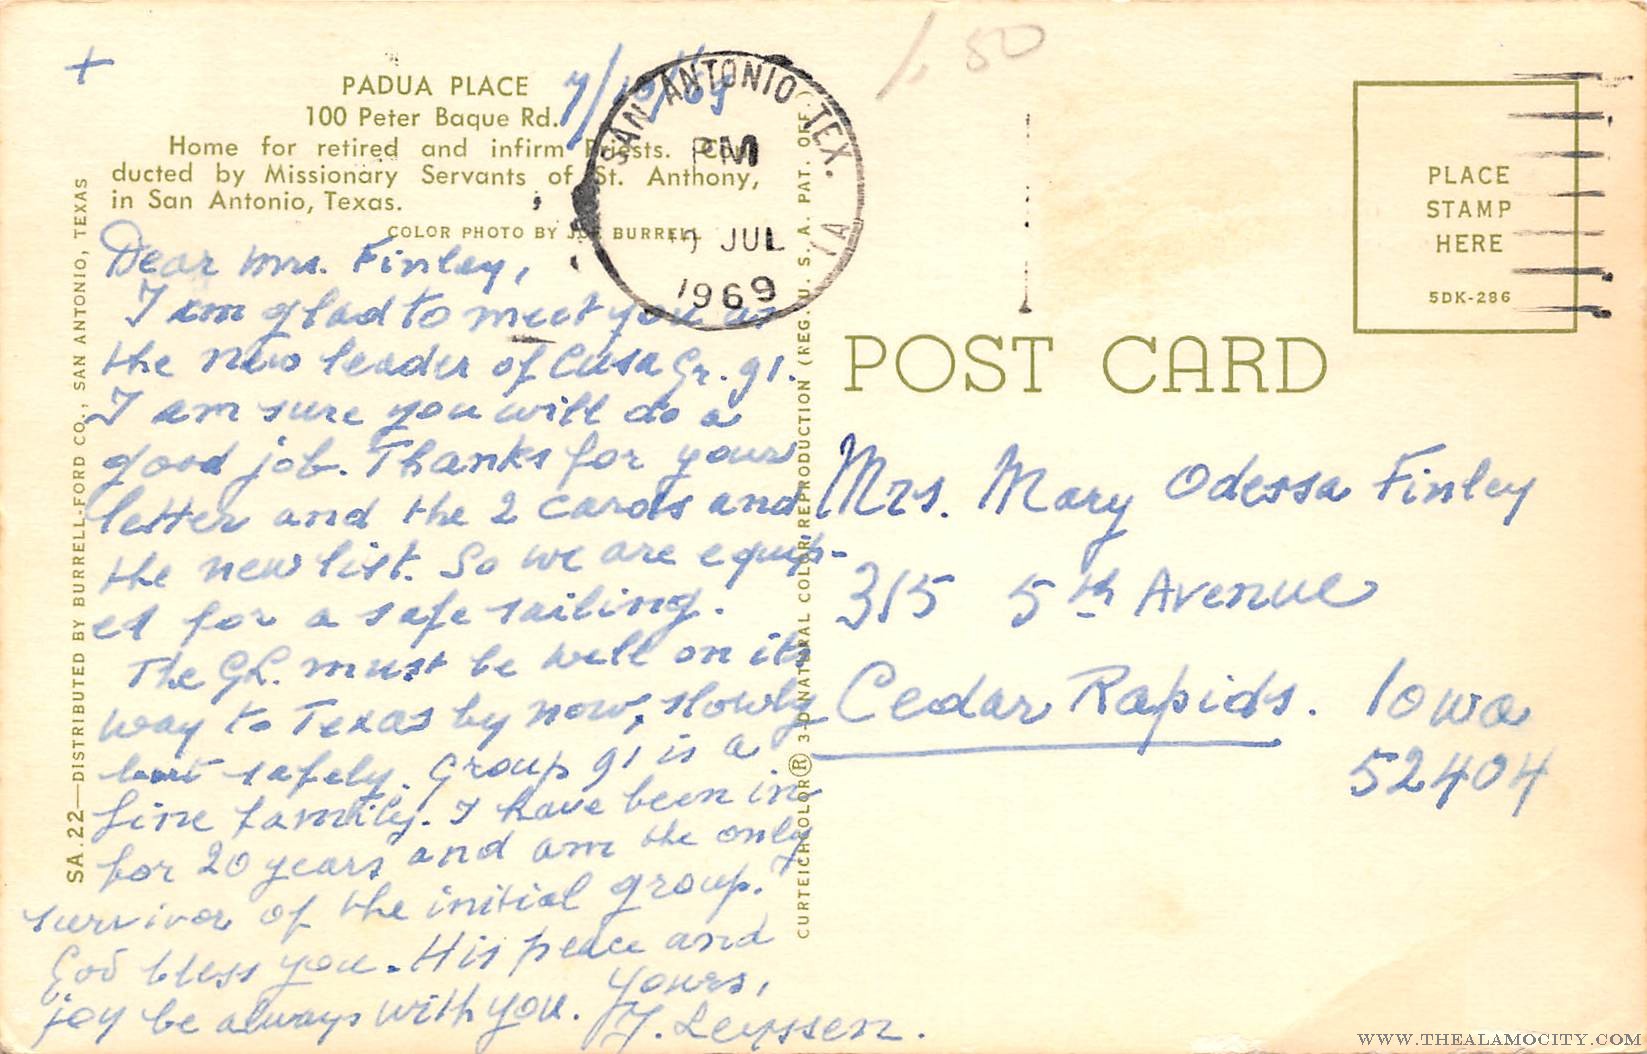 +
PADUA PLACE
100 Peter Baque Rd.
Home for retired and infirm Priests. Con-
ducted by Missionary Servants of St. Anthony,
in San Antonio, Texas.
COLOR PHOTO BY JOE BURRELL
7/10/69
SAN ANTONIO TEX.
PM
JUL
1969
1.50
PLACE
STAMP
HERE
5DK-286
POST CARD
Dear Mrs. Finley,
I am glad to meet you as
the new leader of Cusa Gr. 91.
I am sure you will do a
good job. Thanks for your
letter and the 2 cards and
the new list. So we are equip-
ed for a safe sailing.
The GL. must be well on its
way to Texas by now, slowly
but safely. Group 91 is a
fine family. I have been in
for 20 years and am the only
survivor of the initial group.
God bless you. His peace and
joy be always with you. Yours,
Leyssen.
Mrs. Mary Odessa Finley
315 5th Avenue
Cedar Rapids. Iowa
52404
SA.22—DISTRIBUTED BY BURRELL-FORD CO., SAN ANTONIO, TEXAS
CURTEICHCOLOR® 3-D NATURAL COLOR REPRODUCTION (REG. U. S. A. PAT. OFF.)
WWW.THEALAMOCITY.COM